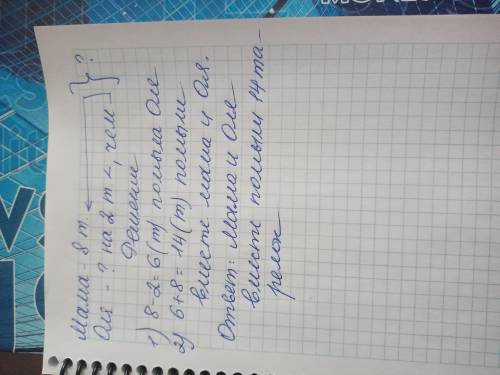 Мама - 8 т. }?
Оля - ? на 2 т <, чем
Решение
1) 8-2=6(т) помыла Оля
2) 6+8=14(т) помыли
вместе мама и Оля.
Ответ: Мама и Оля
вместе помыли 14 та-
релок